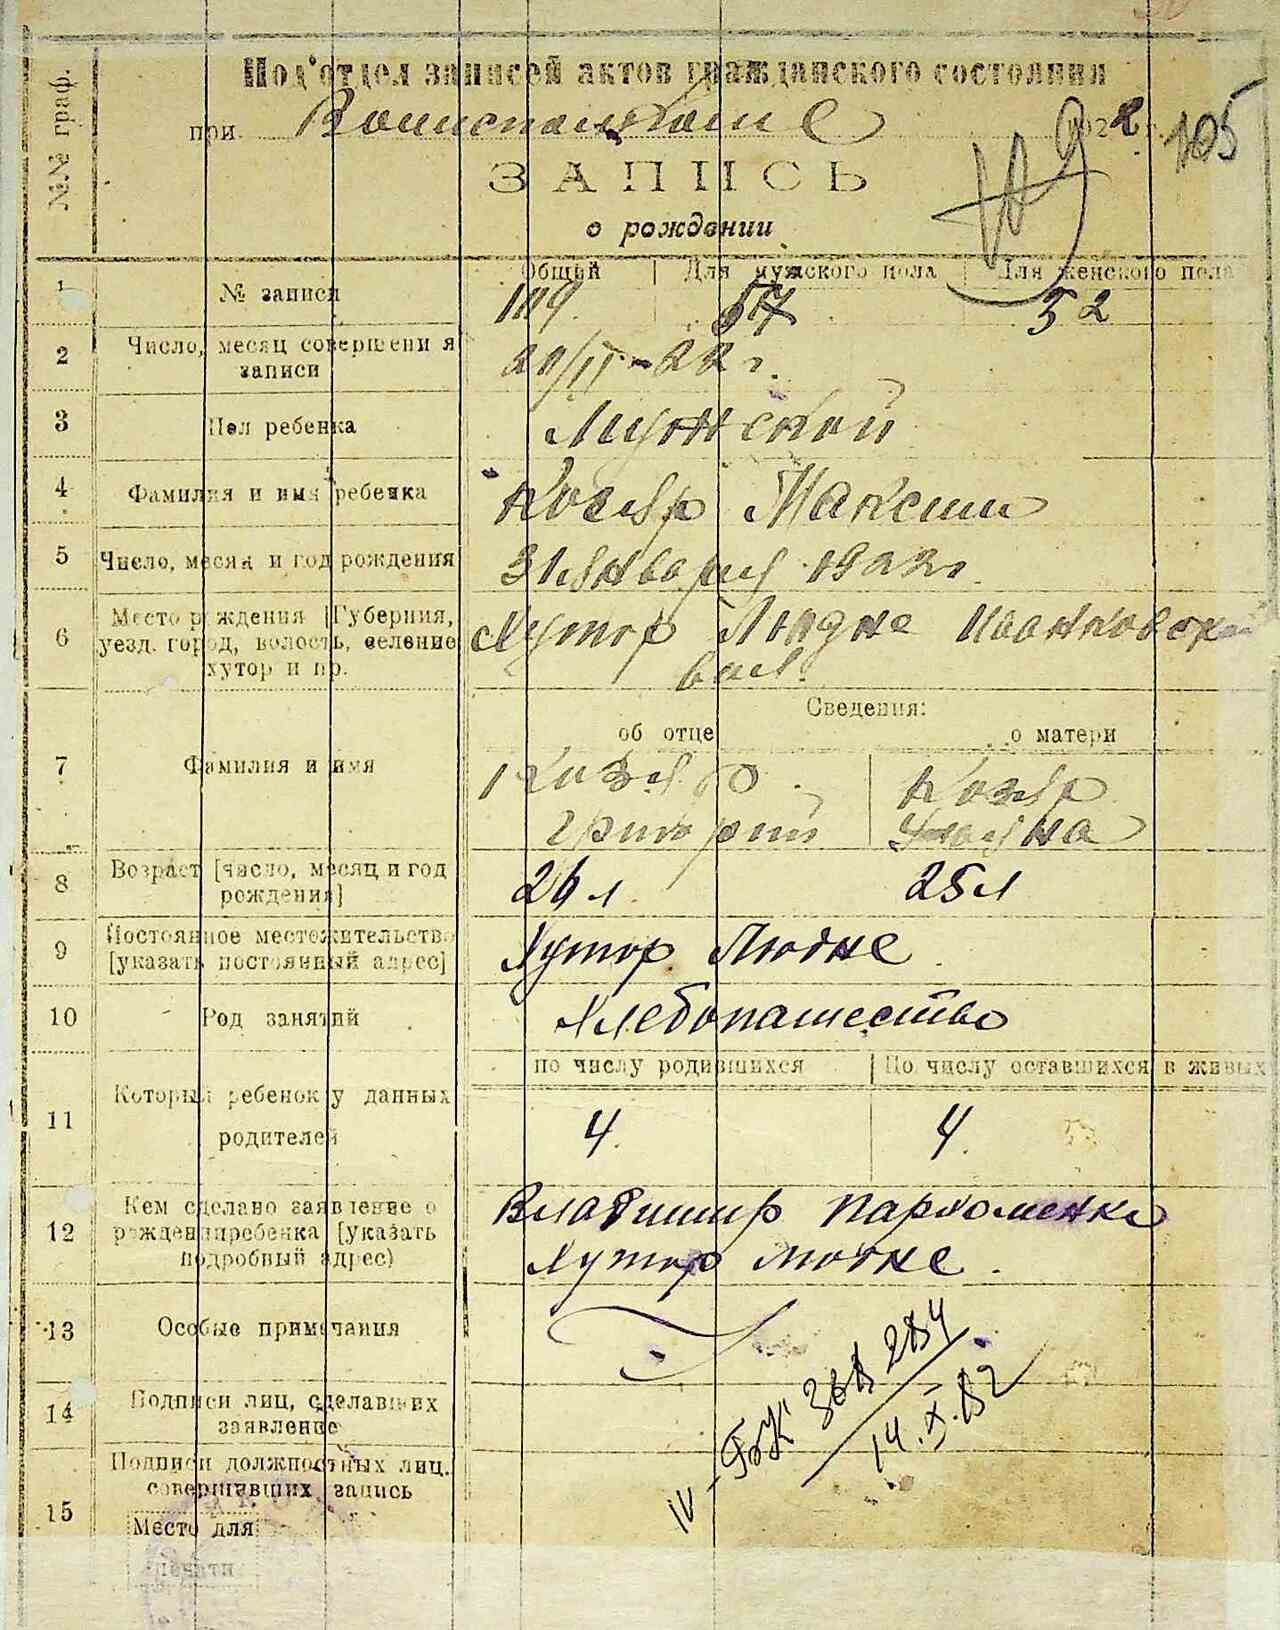 №№ граф.
Под'отдел записей актов гражданского состояния
при 1922 г. 105
ЗАПИСЬ
о рождении
Общий Для мужского пола Для женского пола
1 № записи 109 57 52
2 Число, месяц совершения
записи
3 Пол ребенка Мужской
4 Фамилия и имя ребенка Козяр Максим
5 Число, месяц и год рождения 31 января 1922 г.
6 Место рождения [Губерния,
уезд, город, волость, селение
хутор и пр. Хутор Людне Иванковской
вол.
Сведения:
об отце о матери
7 Фамилия и имя Козяр Козяр
Григорий
8 Возраст [число, месяц и год
рождения] 26 л. 25 л
9 Постоянное местожительство
[указать постоянный адрес] Хутор Людне
10 Род занятий Хлебопашество
по числу родившихся По числу оставшихся в живых
11 Который ребенок у данных
родителей 4. 4.
12 Кем сделано заявление о
рождении ребенка [указать
подробный адрес) Владимир Пархоменко
Хутор Людне.
13 Особые примечания
14 Подписи лиц, сделавших
заявление
15 Подписи должностных лиц.
совершивших запись
Место для
печати